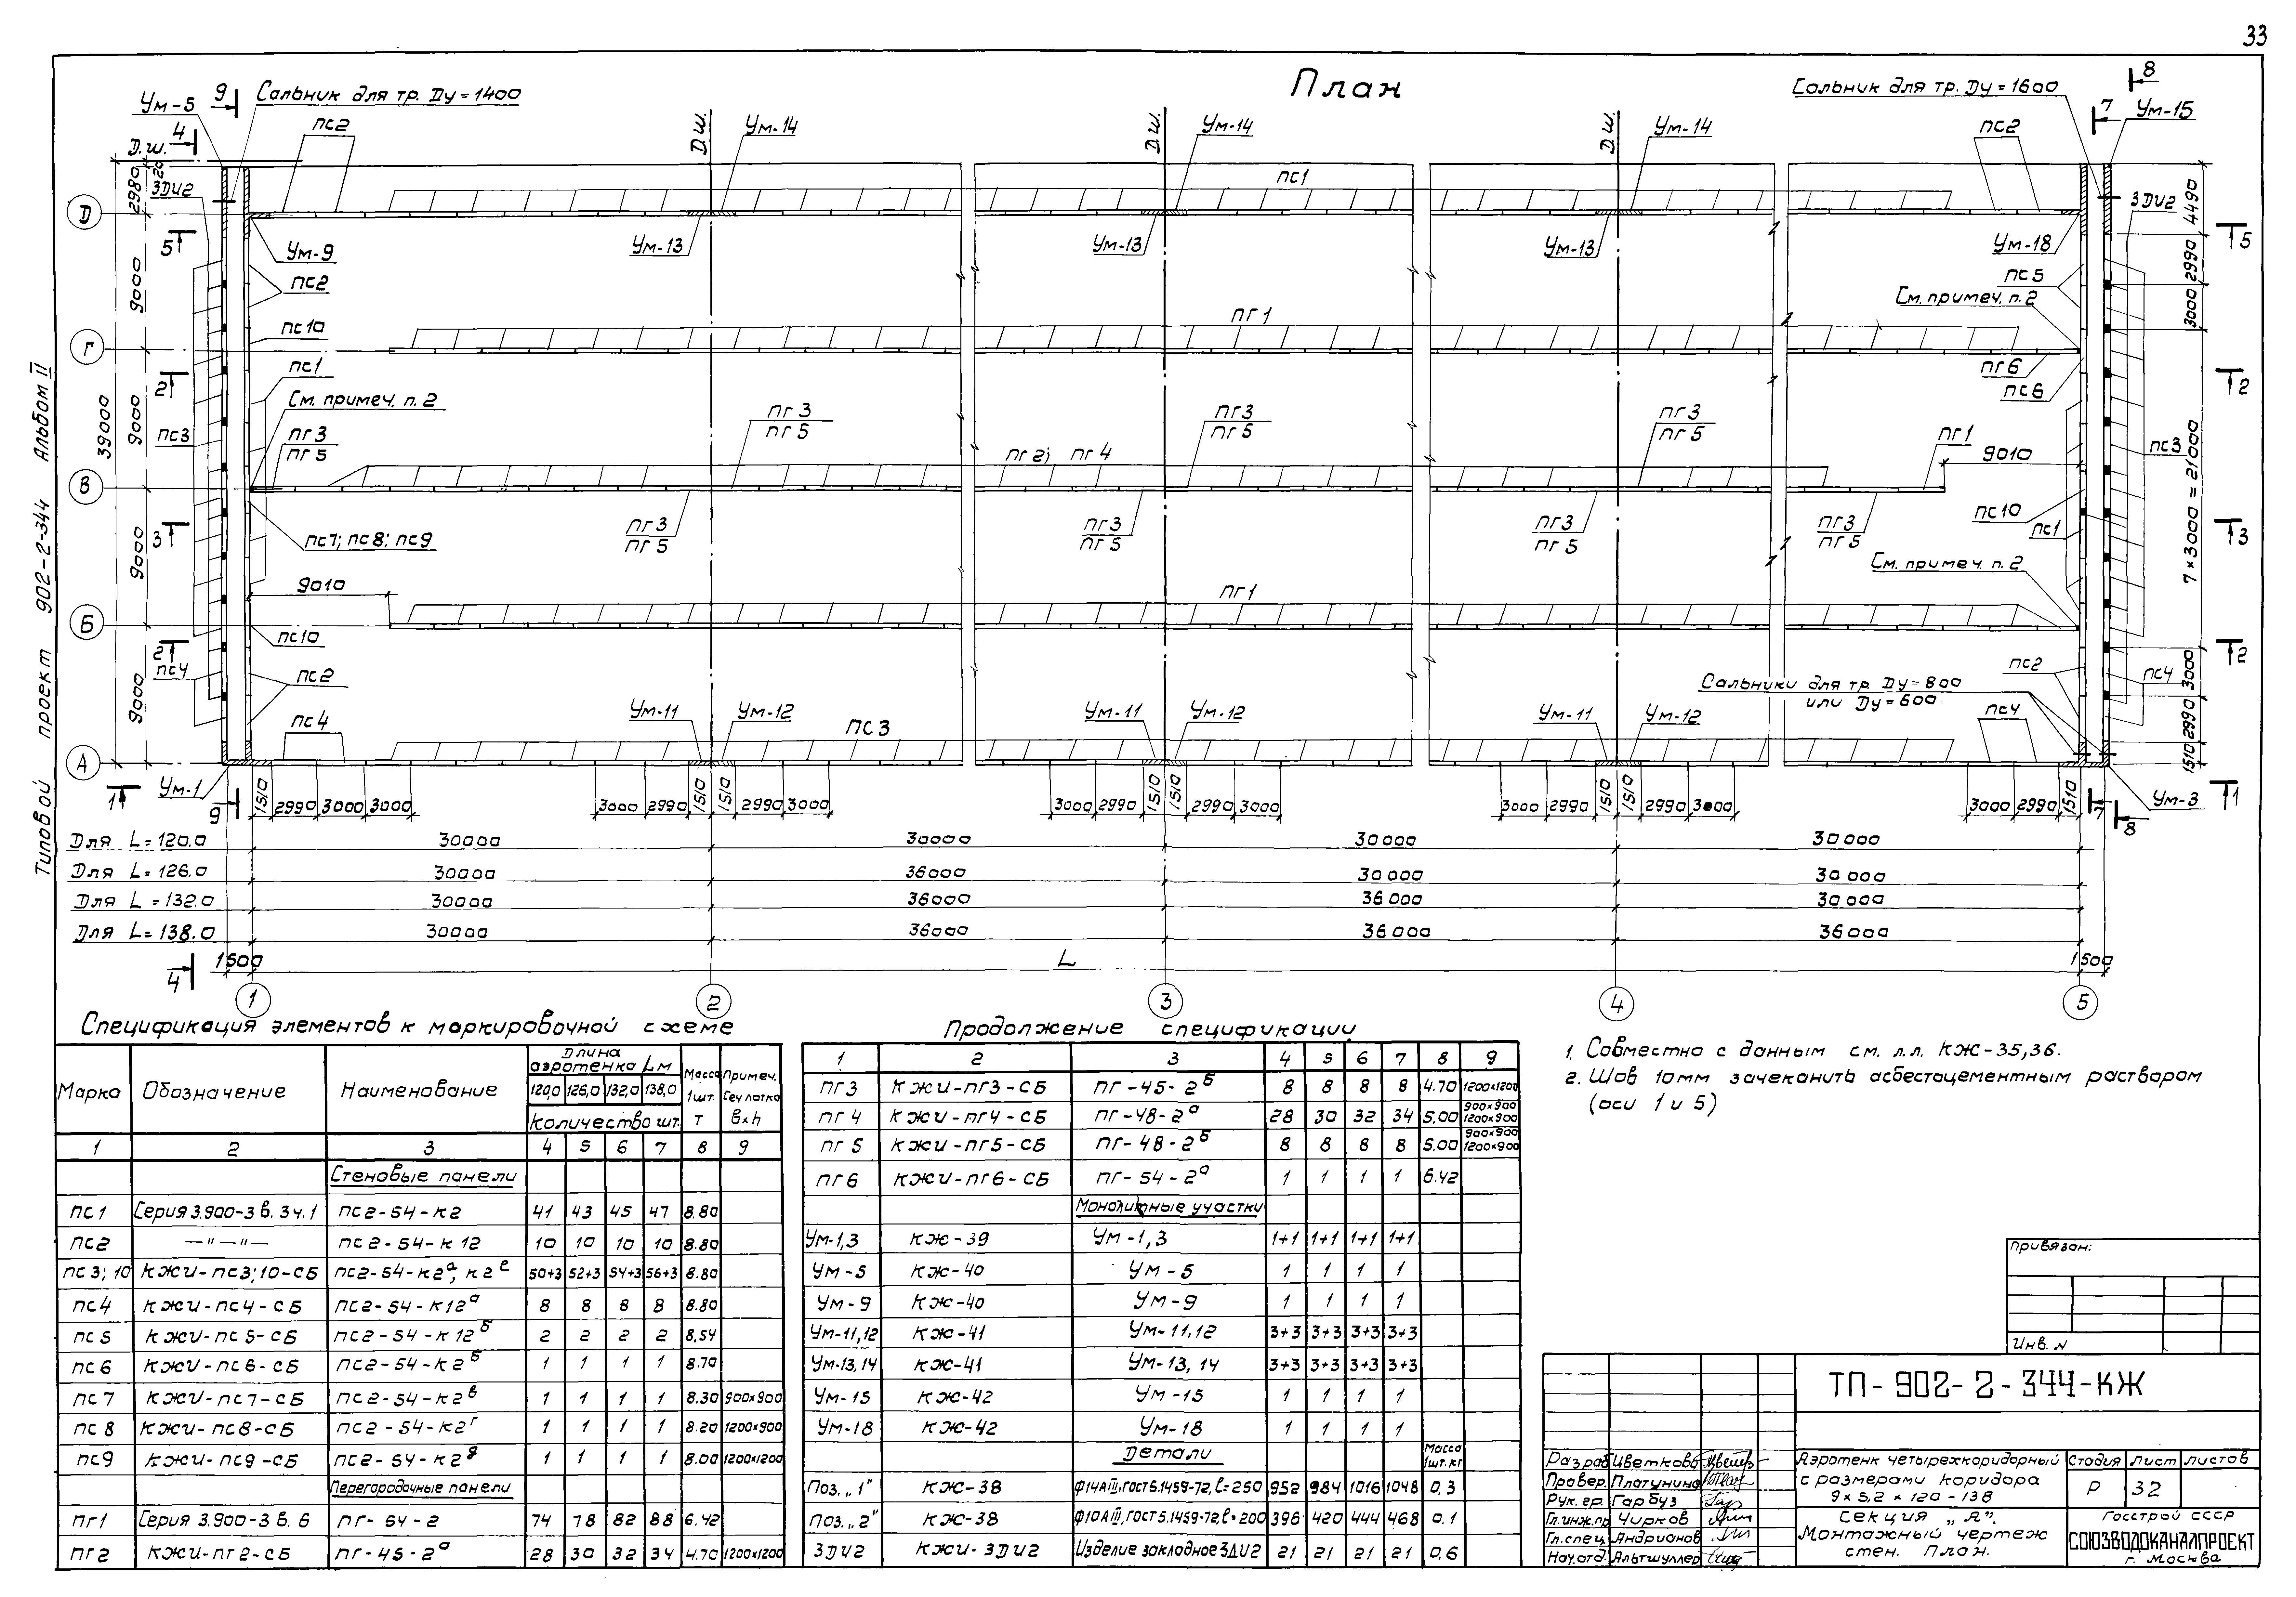 33
План
Типовой проект 902-2-344 Альбом II
Ум-5
9
Сальник для тр. Dу=1400
4
Д.ш.
пс2
Д.ш.
Ум-14
Д.ш.
Ум-14
Д.ш.
Ум-14
Сальник для тр. Dу=1600
8
7
Ум-15
пс2
20
2980
3ДИ2
Д
пс1
4490
3ДИ2
5
Ум-9
Ум-13
Ум-13
Ум-13
Ум-18
5
9000
пс2
пс5
2990
См. примеч. п. 2
3000
пс10
пг1
Г
2
пс1
пг6
2
пс6
39000
9000
См. примеч. п. 2
пс3
пг3
пг5
пг3
пг5
пг3
пг5
пг3
пг5
пг2; пг4
пг1
9010
пс3
В
7×3000=21000
3
пс7; пс8; пс9
пг3
пг5
пг3
пг5
пг3
пг5
пг3
пг5
пс10
пс1
3
9000
9010
пг1
См. примеч. п. 2
Б
пс10
2
пс4
пс2
9000
пс2
2
пс4
3000
Сальники для тр. Dу=800
или Dу=600
пс4
Ум-11
Ум-12
пс3
Ум-11
Ум-12
Ум-11
Ум-12
пс4
2990
1510
А
1
Ум-1
9
1510 2990 3000 3000
3000 2990 1510 1510 2990 3000
3000 2990 1510 1510 2990 3000
3000 2990 1510 1510 2990 3000
3000 2990 1510
7
8
Ум-3
1
Для L=120.0 30000 30000 30000 30000
Для L=126.0 30000 36000 30000 30000
Для L=132.0 30000 36000 36000 30000
Для L=138.0 30000 36000 36000 36000
4
1500 L 1500
1 2 3 4 5
Спецификация элементов к маркировочной схеме
Марка Обозначение Наименование Длина аэротенка L м Масса 1шт. т Примеч. Сеч лотка вxh
120,0 126,0 132,0 138,0
Количество шт.
1 2 3 4 5 6 7 8 9
Стеновые панели
пс1 Серия 3.900-3 в. 3 ч.1 пс2-54-к2 41 43 45 47 8.80
пс2 —"—"— пс2-54-к12 10 10 10 10 8.80
пс3; 10 КЖИ-пс3;10-СБ пс2-54-к2а, к2е 50+3 52+3 54+3 56+3 8.80
пс4 КЖИ-пс4-СБ пс2-54-к12а 8 8 8 8 8.80
пс5 КЖИ-пс5-СБ пс2-54-к12б 2 2 2 2 8,54
пс6 КЖИ-пс6-СБ пс2-54-к2б 1 1 1 1 8.70
пс7 КЖИ-пс7-СБ пс2-54-к2в 1 1 1 1 8.30 900x900
пс8 КЖИ-пс8-СБ пс2-54-к2г 1 1 1 1 8.20 1200x900
пс9 КЖИ-пс9-СБ пс2-54-к2д 1 1 1 1 8.00 1200x1200
Перегородочные панели
пг1 Серия 3.900-3 в. 6 пг-54-2 74 78 82 88 6.42
пг2 КЖИ-пг2-СБ пг-45-2а 28 30 32 34 4.70 1200x1200
Продолжение спецификации
1 2 3 4 5 6 7 8 9
пг3 КЖИ-пг3-СБ пг-45-2б 8 8 8 8 4.70 1200x1200
пг4 КЖИ-пг4-СБ пг-48-2а 28 30 32 34 5.00 900x900 1200x900
пг5 КЖИ-пг5-СБ пг-48-2б 8 8 8 8 5.00 900x900 1200x900
пг6 КЖИ-пг6-СБ пг-54-2а 1 1 1 1 6.42
Монолитные участки
Ум-1,3 КЖ-39 Ум-1,3 1+1 1+1 1+1 1+1
Ум-5 КЖ-40 Ум-5 1 1 1 1
Ум-9 КЖ-40 Ум-9 1 1 1 1
Ум-11,12 КЖ-41 Ум-11,12 3+3 3+3 3+3 3+3
Ум-13,14 КЖ-41 Ум-13,14 3+3 3+3 3+3 3+3
Ум-15 КЖ-42 Ум-15 1 1 1 1
Ум-18 КЖ-42 Ум-18 1 1 1 1
Детали Масса 1шт. кг
Поз. „1" КЖ-38 Ф14АIII, ГОСТ 5.1459-72, l=250 952 984 1016 1048 0,3
Поз. „2" КЖ-38 Ф10АIII, ГОСТ 5.1459-72, l=200 396 420 444 468 0.1
3ДИ2 КЖИ-3ДИ2 Изделие закладное 3ДИ2 21 21 21 21 0,6
1. Совместно с данным см. л.л. КЖ-35,36.
2. Шов 10мм зачеканить асбестоцементным раствором
(оси 1 и 5)
Привязан:
Инв. N
ТП-902-2-344-КЖ
Разраб. Цветкова
Провер. Платунина
Рук. гр. Гарбуз
Гл.инж.пр Чирков
Гл.спец. Андрианов
Нач.отд. Альтшуллер
Аэротенк четырехкоридорный
с размерами коридора
9×5,2×120-138
Стадия Лист Листов
Р 32
Секция „А".
Монтажный чертеж
стен. План.
Госстрой СССР
СОЮЗВОДОКАНАЛПРОЕКТ
г. Москва